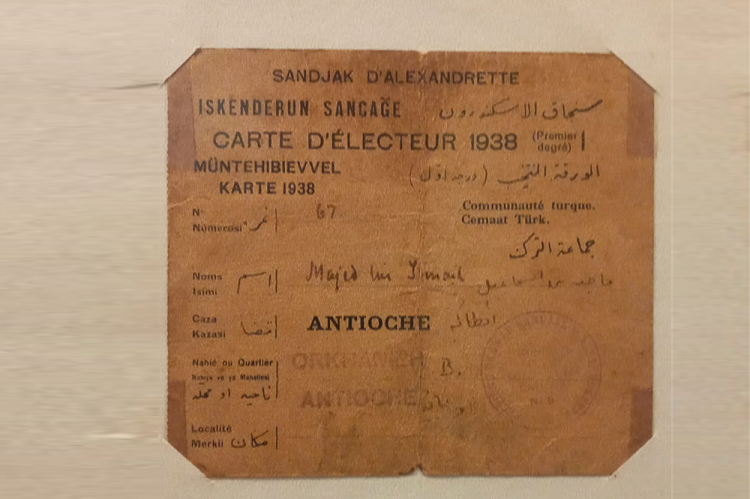 SANDJAK D'ALEXANDRETTE
ISKENDERUN SANCAĞE سنجاق الاسكندرون
CARTE D'ÉLECTEUR 1938 (Premier degré)
MÜNTEHIBIEVVEL
KARTE 1938
الورقة (درجه اول)
N°
Numerosi نمرو
67
Communauté turque.
Cemaat Türk.
جماعة الترك
Noms
Isimi اسم
Majed bin Ismail
ماجد بن اسماعيل
Caza
Kazasi قضا
ANTIOCHE انطاكيه
Nahié ou Quartier
ناحيه او محله
ORKHANIEH B.
ANTIOCHE
Localité
Merkii مكان